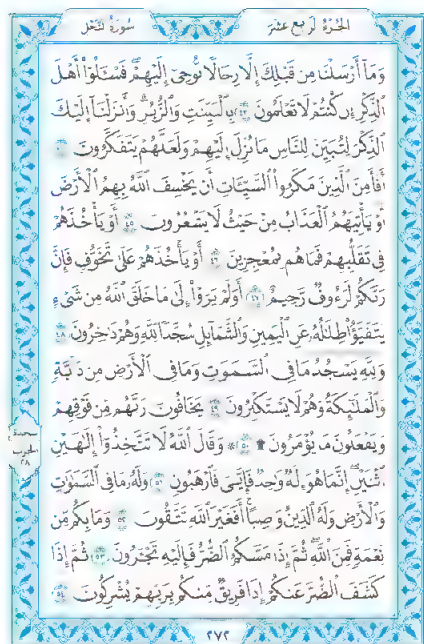 سورة النحل
الجزء الرابع عشر
وَمَآ أَرْسَلْنَا مِن قَبْلِكَ إِلَّا رِجَالًا نُّوحِىٓ إِلَيْهِمْ ۚ فَسْـَٔلُوٓا۟ أَهْلَ
ٱلذِّكْرِ إِن كُنتُمْ لَا تَعْلَمُونَ ٤٣ بِٱلْبَيِّنَـٰتِ وَٱلزُّبُرِ ۗ وَأَنزَلْنَآ إِلَيْكَ
ٱلذِّكْرَ لِتُبَيِّنَ لِلنَّاسِ مَا نُزِّلَ إِلَيْهِمْ وَلَعَلَّهُمْ يَتَفَكَّرُونَ ٤٤
أَفَأَمِنَ ٱلَّذِينَ مَكَرُوا۟ ٱلسَّيِّـَٔاتِ أَن يَخْسِفَ ٱللَّهُ بِهِمُ ٱلْأَرْضَ
أَوْ يَأْتِيَهُمُ ٱلْعَذَابُ مِنْ حَيْثُ لَا يَشْعُرُونَ ٤٥ أَوْ يَأْخُذَهُمْ
فِى تَقَلُّبِهِمْ فَمَا هُم بِمُعْجِزِينَ ٤٦ أَوْ يَأْخُذَهُمْ عَلَىٰ تَخَوُّفٍ فَإِنَّ
رَبَّكُمْ لَرَءُوفٌ رَّحِيمٌ ٤٧ أَوَلَمْ يَرَوْا۟ إِلَىٰ مَا خَلَقَ ٱللَّهُ مِن شَىْءٍ
يَتَفَيَّؤُا۟ ظِلَـٰلُهُۥ عَنِ ٱلْيَمِينِ وَٱلشَّمَآئِلِ سُجَّدًا لِّلَّهِ وَهُمْ دَٰخِرُونَ ٤٨
وَلِلَّهِ يَسْجُدُ مَا فِى ٱلسَّمَـٰوَٰتِ وَمَا فِى ٱلْأَرْضِ مِن دَآبَّةٍ
وَٱلْمَلَـٰٓئِكَةُ وَهُمْ لَا يَسْتَكْبِرُونَ ٤٩ يَخَافُونَ رَبَّهُم مِّن فَوْقِهِمْ
وَيَفْعَلُونَ مَا يُؤْمَرُونَ ۩ ٥٠ ۞ وَقَالَ ٱللَّهُ لَا تَتَّخِذُوٓا۟ إِلَـٰهَيْنِ
ٱثْنَيْنِ ۖ إِنَّمَا هُوَ إِلَـٰهٌ وَٰحِدٌ ۖ فَإِيَّـٰىَ فَٱرْهَبُونِ ٥١ وَلَهُۥ مَا فِى ٱلسَّمَـٰوَٰتِ
وَٱلْأَرْضِ وَلَهُ ٱلدِّينُ وَاصِبًا ۚ أَفَغَيْرَ ٱللَّهِ تَتَّقُونَ ٥٢ وَمَا بِكُم مِّن
نِّعْمَةٍ فَمِنَ ٱللَّهِ ۖ ثُمَّ إِذَا مَسَّكُمُ ٱلضُّرُّ فَإِلَيْهِ تَجْـَٔرُونَ ٥٣ ثُمَّ إِذَا
كَشَفَ ٱلضُّرَّ عَنكُمْ إِذَا فَرِيقٌ مِّنكُم بِرَبِّهِمْ يُشْرِكُونَ ٥٤
سجدة
الحزب
٢٨
٢٧٢